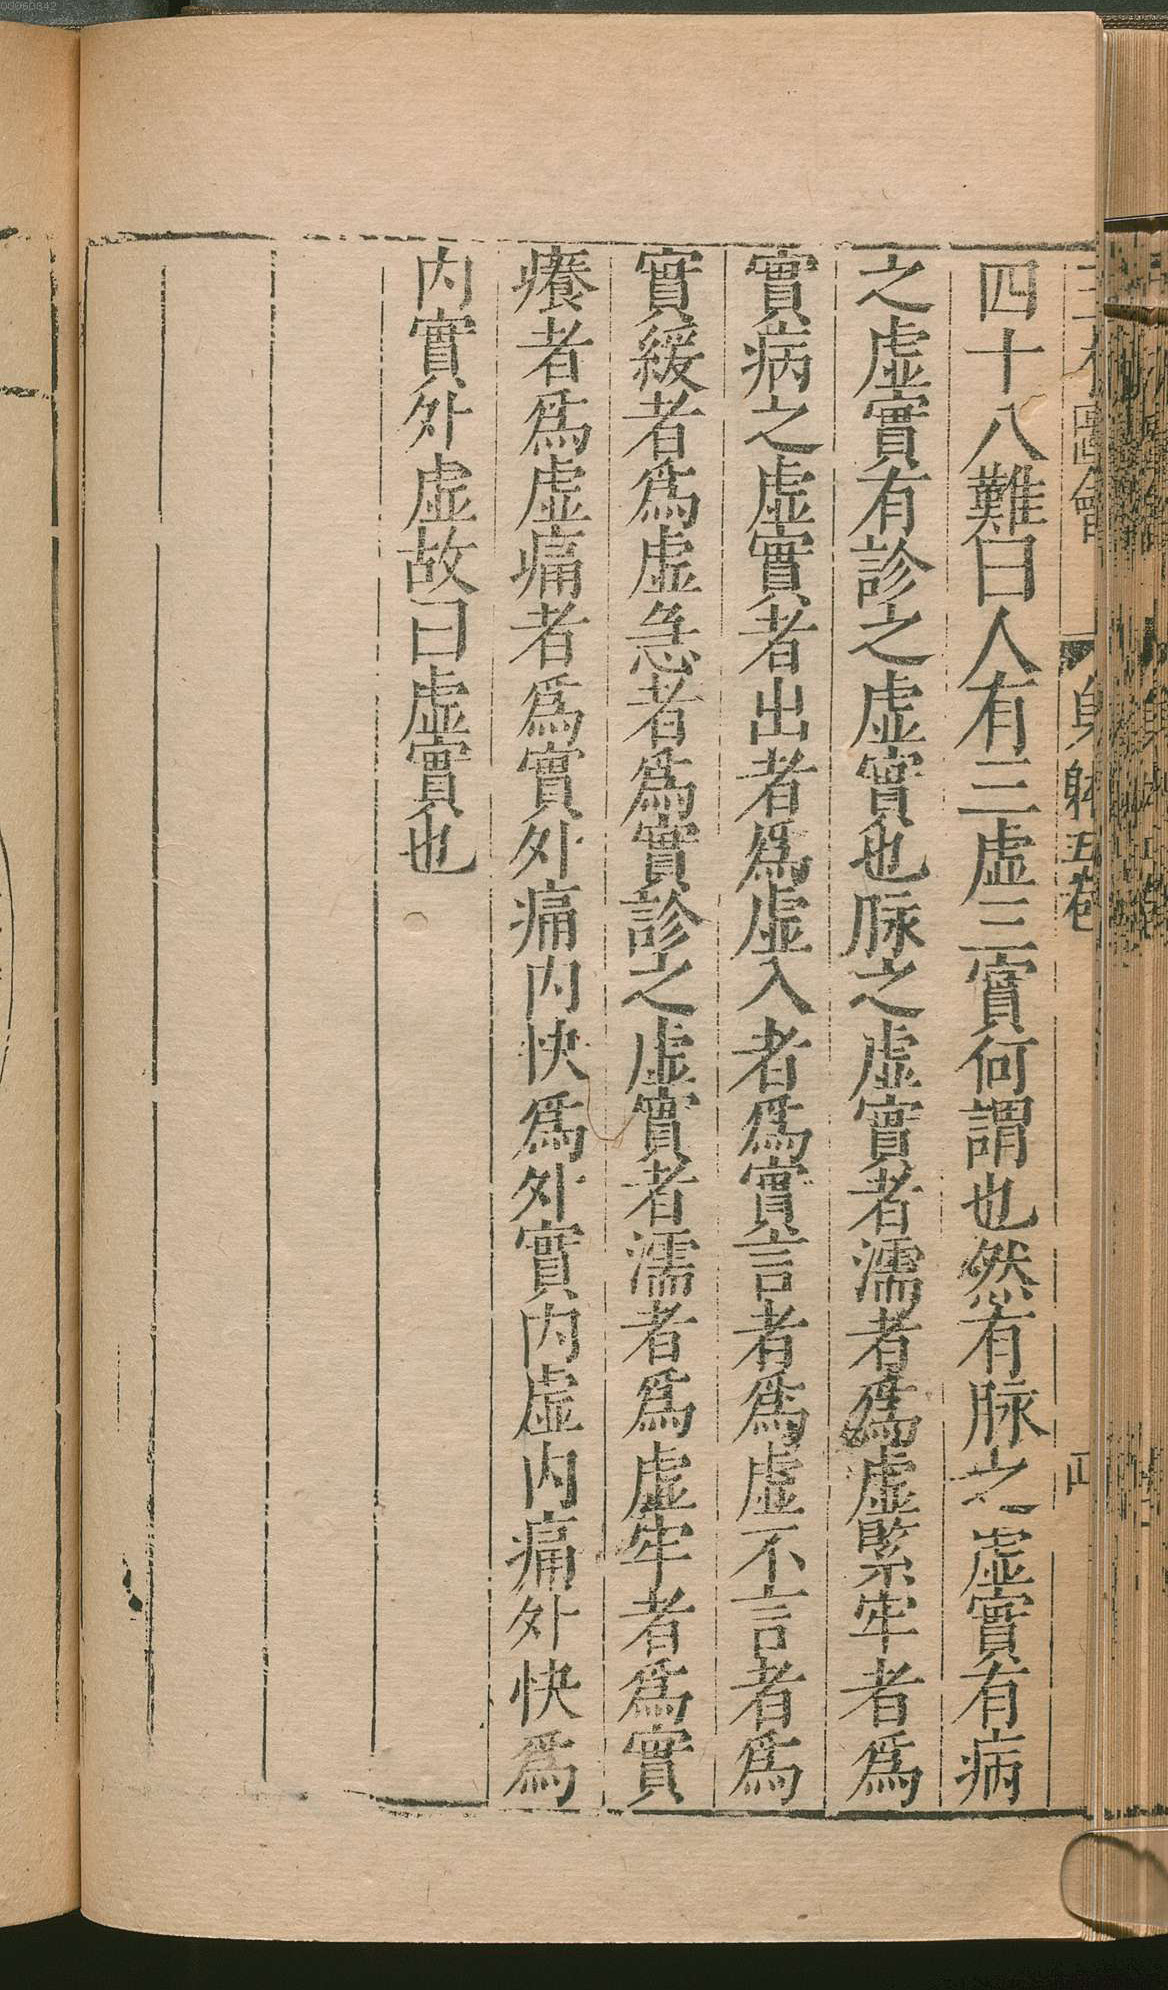 四十八難曰人有三虛三實何謂也然有脉之虛實有病
之虛實有診之虛實也脉之虛實者濡者爲虛緊牢者爲
實病之虛實者出者爲虛入者爲實言者爲虛不言者爲
實緩者爲虛急者爲實診之虛實者濡者爲虛牢者爲實
癢者爲虛痛者爲實外痛内快爲外實内虛内痛外快爲
内實外虛故曰虛實也